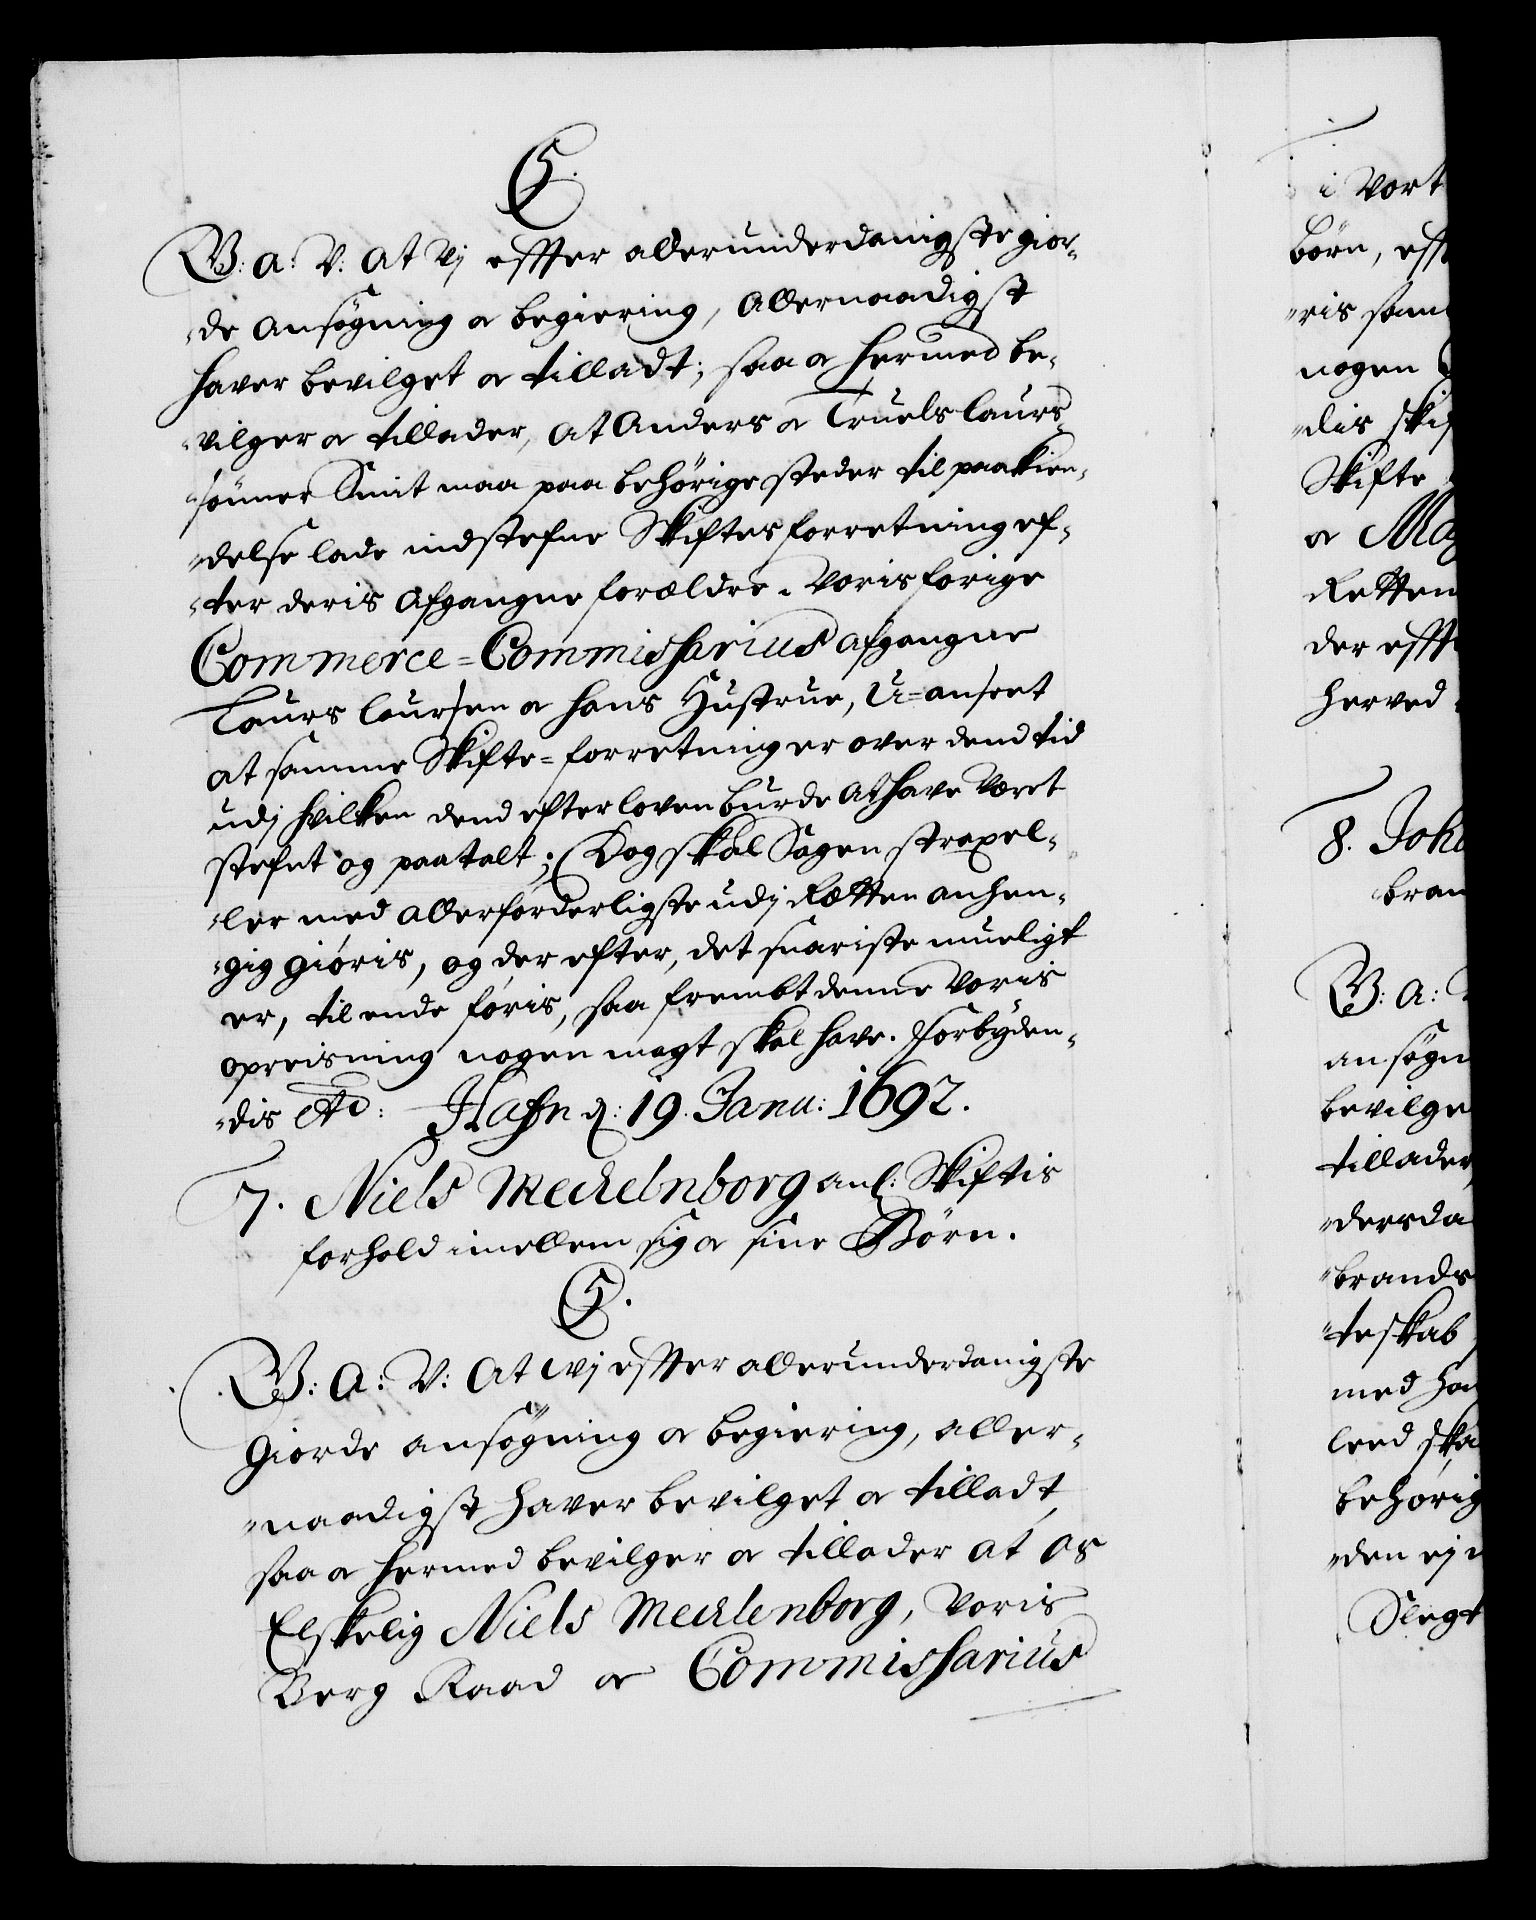 C5.
V: a: V: at Vj effter allerunderdanigste gior-
de ansøgning og begiering, allernaadigst
hafver bevilget og tilladt; saa og hermed be-
vilger og tillader, at Anders og Truels Laurs-
sönner Smit maa paa behörige steder til paakien-
delse lade indstefne Skiftesforretning ef-
ter deris afgangne forældre, Voris forige
Commerce=Commissarius afgangne
Laurs Laursen og hans Hustrue, U-anseet
at samme Skifte=forretning er over dend tid
udj hvilken dend efter loven burde at have Været
stefnt og paatalt; Dog skal Sagen strax el-
ler med allerforderligste udj Rætten anhen-
gig giöris, og der efter, det snariste mueligt
er, til ende föris, saa frembt denne Voris
opreisning nogen magt skal have. Forbyden-
dis etc: Hafn d: 19. Janu: 1692.
7. Niels Meckelnborg anl: Skiftis
forhold imellem sig og sine Börn.
C5.
V: A: V: At Wj effter allerunderdanigste
giorde ansøgning og begiering, aller-
naadigst hafver bevilget og tilladt,
saa og hermed bevilger og tillader at os
Elskelig Niels Mecklenborg, Voris
Berg Raad og Commissarius
i Vort
börn, eff
ris sam
nogen
dis skif
Skifte
og Mag
Retten
der efft
herved
8. Joha
bran
V: A:
ansøgn
bevilge
tillader
dersda
brands
teskab
med ha
leed ska
behörig
den ej
Slegt